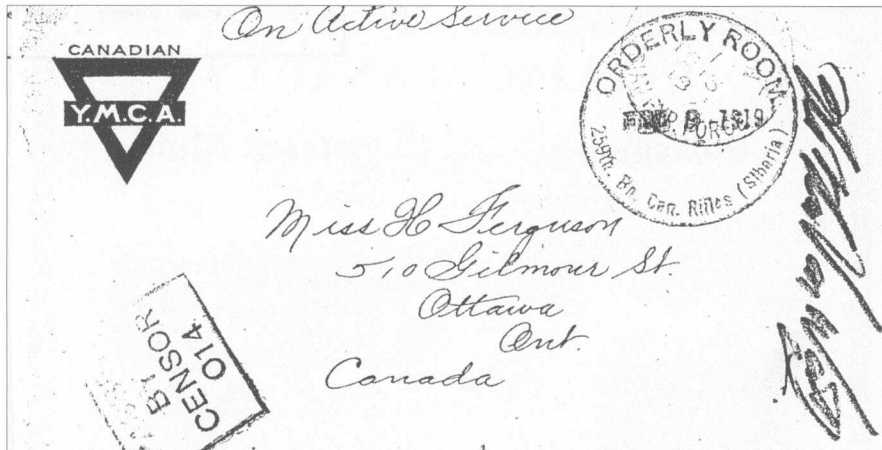 On Active Service
CANADIAN
Y.M.C.A.
ORDERLY ROOM
1919
259th. Bn. Can. Rifles (Siberia)
Miss H Ferguson
510 Gilmour St.
Ottawa
Ont.
Canada
BY
CENSOR
014